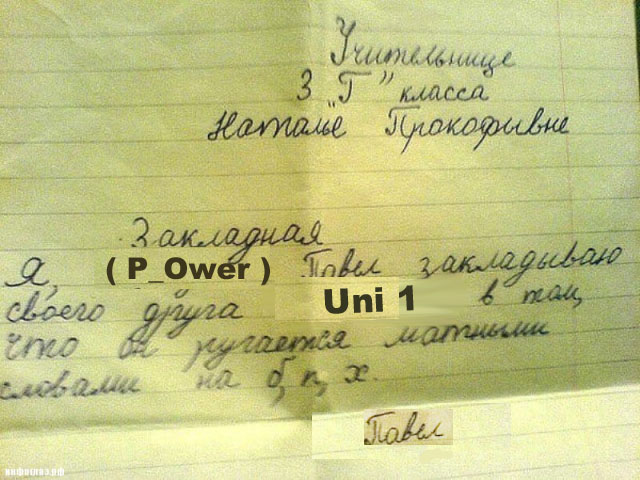 Учительнице
3 „Г” класса
Наталье Прокофивне
Закладная
Я, ( P_Ower ) Павел закладываю
своего друга Uni 1 в том,
что он ругается матными
словами на б, п, х.
Павел